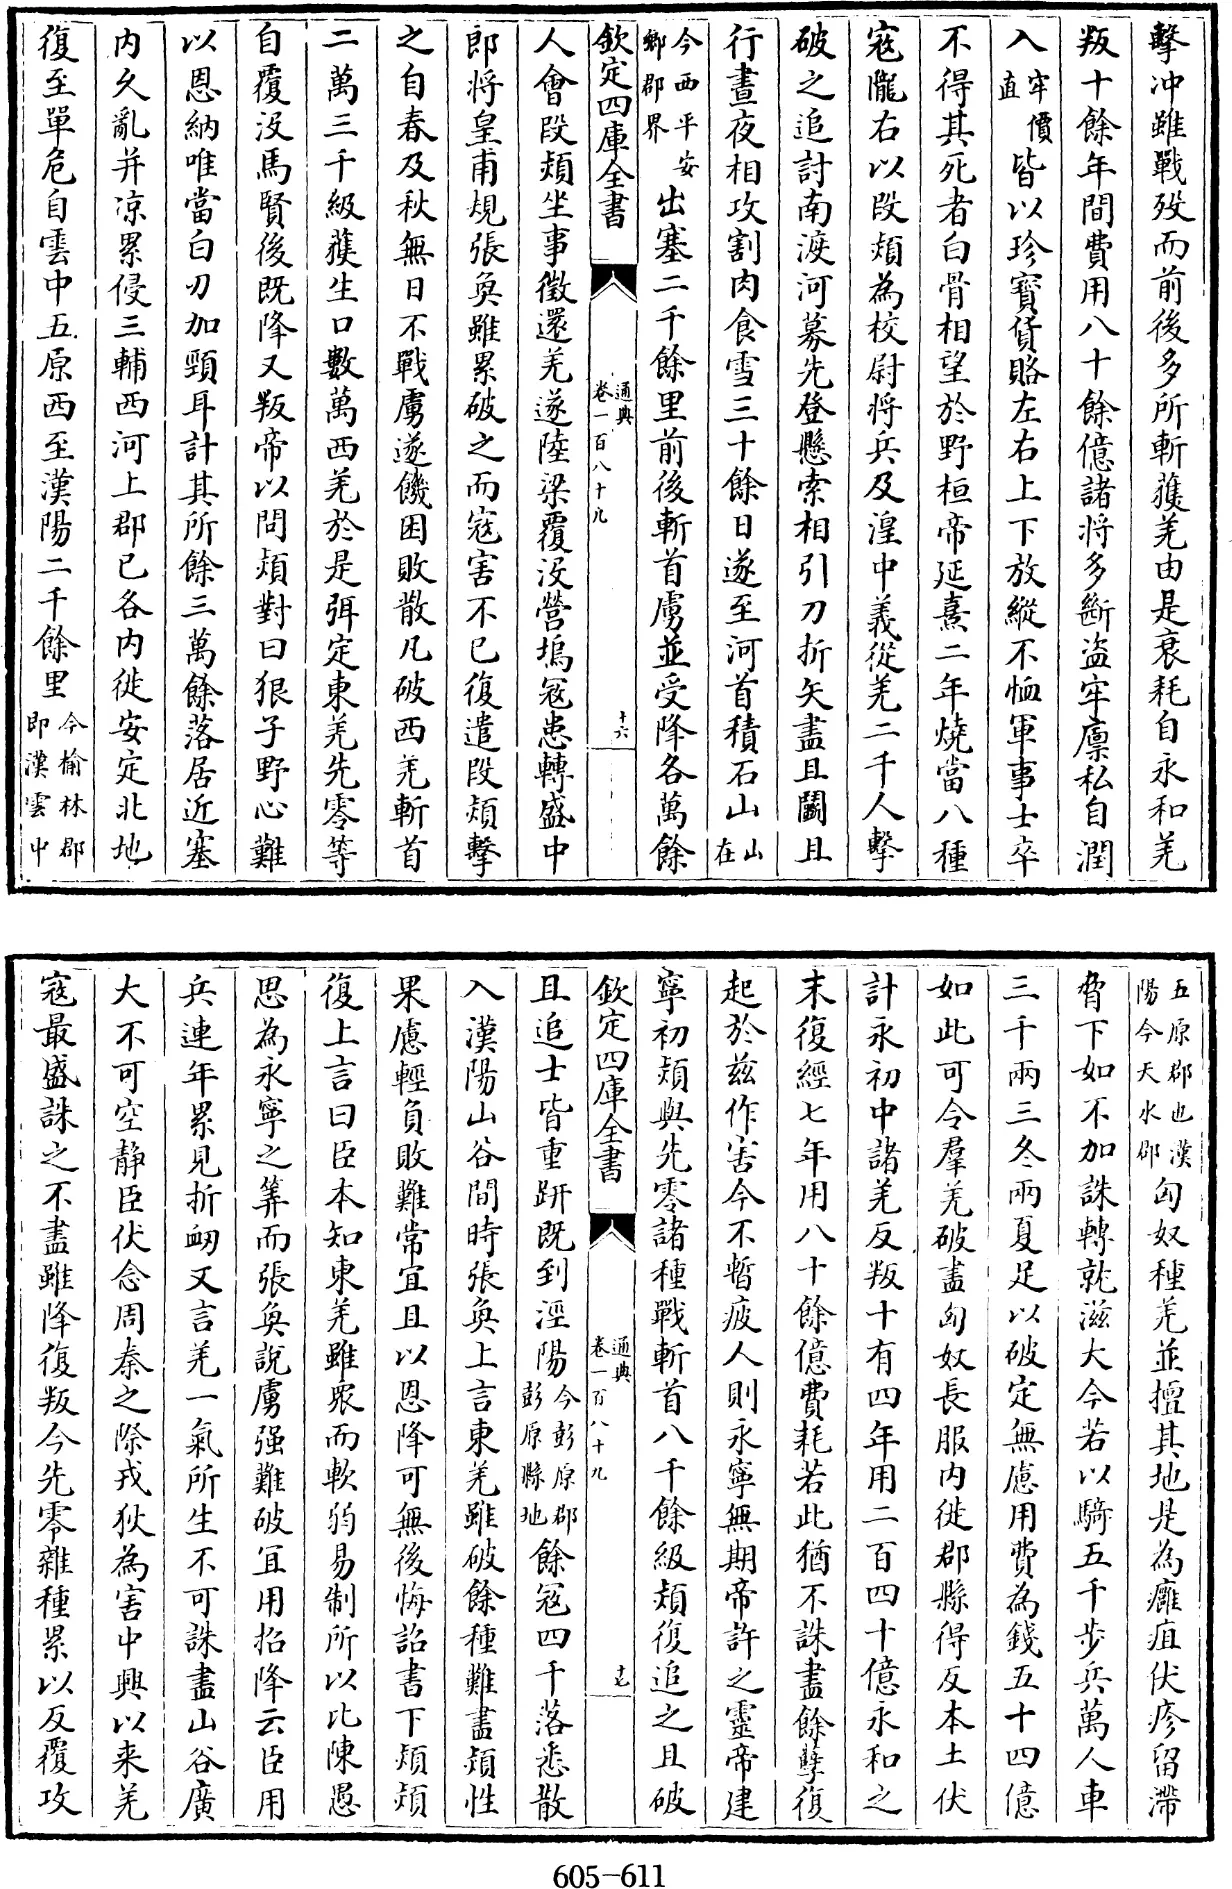 擊冲雖戰歿而前後多所斬獲羌由是衰耗自永和羌
叛十餘年間費用八十餘億諸將多斷盜牢廪私自潤
入牢價直皆以珍寳貨賂左右上下放縱不恤軍事士卒
不得其死者白骨相望於野桓帝延熹二年燒當八種
寇隴右以段熲為校尉將兵及湟中義從羌二千人擊
破之追討南渡河募先登懸索相引刀折矢盡且鬭且
行晝夜相攻割肉食雪三十餘日遂至河首積石山山在
今西平安鄉郡界出塞二千餘里前後斬首虜並受降各萬餘
欽定四庫全書
通典
卷一百八十九
十六
人會段熲坐事徵還羌遂陸梁覆沒營塢寇患轉盛中
郎將皇甫規張奐雖累破之而寇害不已復遣段熲擊
之自春及秋無日不戰虜遂饑困敗散凡破西羌斬首
二萬三千級獲生口數萬西羌於是弭定東羌先零等
自覆沒馬賢後既降又叛帝以問熲對曰狼子野心難
以恩納唯當白刃加頸耳計其所餘三萬餘落居近塞
内久亂并凉累侵三輔西河上郡已各内徙安定北地
復至單危自雲中五原西至漢陽二千餘里今榆林郡即漢雲中
五原郡也漢陽今天水郡匈奴種羌並擅其地是為癰疽伏疹留滯
脅下如不加誅轉就滋大今若以騎五千步兵萬人車
三千兩三冬兩夏足以破定無慮用費為錢五十四億
如此可令羣羌破盡匈奴長服内徙郡縣得反本土伏
計永初中諸羌反叛十有四年用二百四十億永和之
末復經七年用八十餘億費耗若此猶不誅盡餘孽復
起於兹作害今不暫疲人則永寧無期帝許之靈帝建
寧初熲與先零諸種戰斬首八千餘級熲復追之且破
欽定四庫全書
通典
卷一百八十九
十七
且追士皆重趼既到涇陽今彭原郡彭原縣地餘寇四千落悉散
入漢陽山谷間時張奐上言東羌雖破餘種難盡熲性
果慮輕負敗難常宜且以恩降可無後悔詔書下熲熲
復上言曰臣本知東羌雖衆而軟弱易制所以比陳愚
思為永寧之筭而張奐說虜强難破宜用招降云臣用
兵連年累見折衂又言羌一氣所生不可誅盡山谷廣
大不可空静臣伏念周秦之際戎狄為害中興以来羌
寇最盛誅之不盡雖降復叛今先零雜種累以反覆攻
605-611